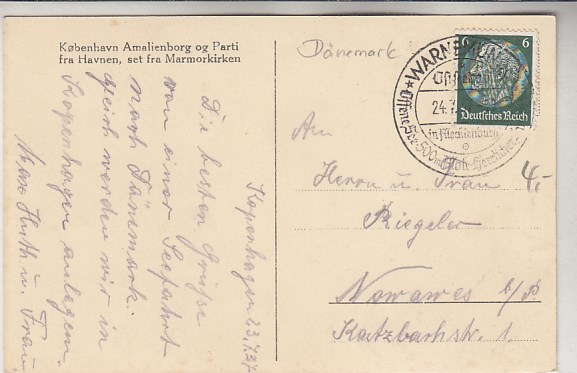 København Amalienborg og Parti
fra Havnen, set fra Marmorkirken
Dänemark
6 6
Deutsches Reich
WARNEMÜNDE
Ostseebad
24.7.
in Mecklenburg
Offene See 500m
Kopenhagen 23.7.37
Die besten Grüße
von einer Seefahrt
nach Dänemark.
gleich werden wir in
Kopenhagen anlegen.
Max Huth u. Frau
An
Herrn u. Frau
Riegeler
Nowawes b/P.
Katzbachstr. 1.
4,-